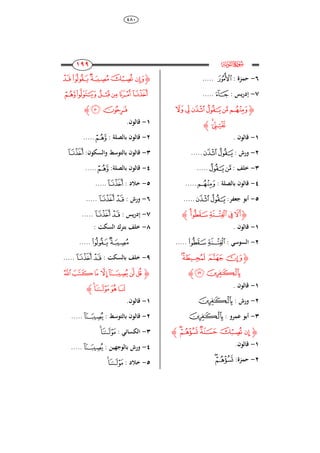 ٤٨٠
١٩٩
٦- حمزة : ٱلۡأُمُورَ .....
٧- إدريس : جَآءَ .....
﴿ وَمِنۡهُم مَّن يَقُولُ ٱئۡذَن لِّي وَلَا
تَفۡتِنِّيٓۚ ﴾
١- قالون .
٢- ورش : يَقُولُ ٱئۡذَن .....
٣- خلف : مَّن يَقُولُ .....
٤- قالون بالصلة : وَمِنۡهُم .....
٥- أبو جعفر : يَقُولُ ٱئۡذَن .....
﴿ أَلَا فِي ٱلۡفِتۡنَةِ سَقَطُواْۗ ﴾
١- قالون .
٢- السوسي : ٱلۡفِتۡنَةِ سَقَطُواْ .....
﴿ وَإِنَّ جَهَنَّمَ لَمُحِيطَةُۢ
بِٱلۡكَٰفِرِينَ ٤٩ ﴾
١- قالون .
٢- ورش : بِٱلۡكَٰفِرِينَ
٣- أبو عمرو : بِٱلۡكَٰفِرِينَ
﴿ إِن تُصِبۡكَ حَسَنَةٞ تَسُؤۡهُمۡۖ ﴾
١- قالون.
٢- حمزة: تَسُؤۡهُمۡ
﴿ وَإِن تُصِبۡكَ مُصِيبَةٞ يَقُولُواْ قَدۡ
أَخَذۡنَآ أَمۡرَنَا مِن قَبۡلُ وَيَتَوَلَّواْ وَّهُمۡ
فَرِحُونَ ٥٠ ﴾
١- قالون.
٢- قالون بالصلة : وَّهُمۡ .....
٣- قالون بالتوسط والسكون: أَخَذۡنَآ .....
٤- قالون بالصلة: وَّهُمۡ .....
٥- خلاد : أَخَذۡنَآ .....
٦- ورش : قَدۡ أَخَذۡنَآ .....
٧- إدريس : قَدۡ أَخَذۡنَآ .....
٨- خلف بترك السكت :
مُصِيبَةٞ يَقُولُواْ .....
٩- خلف بالسكت : قَدۡ أَخَذۡنَآ .....
﴿ قُل لَّن يُصِيبَنَآ إِلَّا مَا كَتَبَ ٱللَّهُ
لَنَا هُوَ مَوۡلَىٰنَاۚ ﴾
١- قالون.
٢- قالون بالتوسط : يُصِيبَنَآ .....
٣- الكسائي : مَوۡلَىٰنَا .....
٤- ورش بالوجهين : يُصِيبَنَآ .....
٥- خلاد : مَوۡلَىٰنَا .....